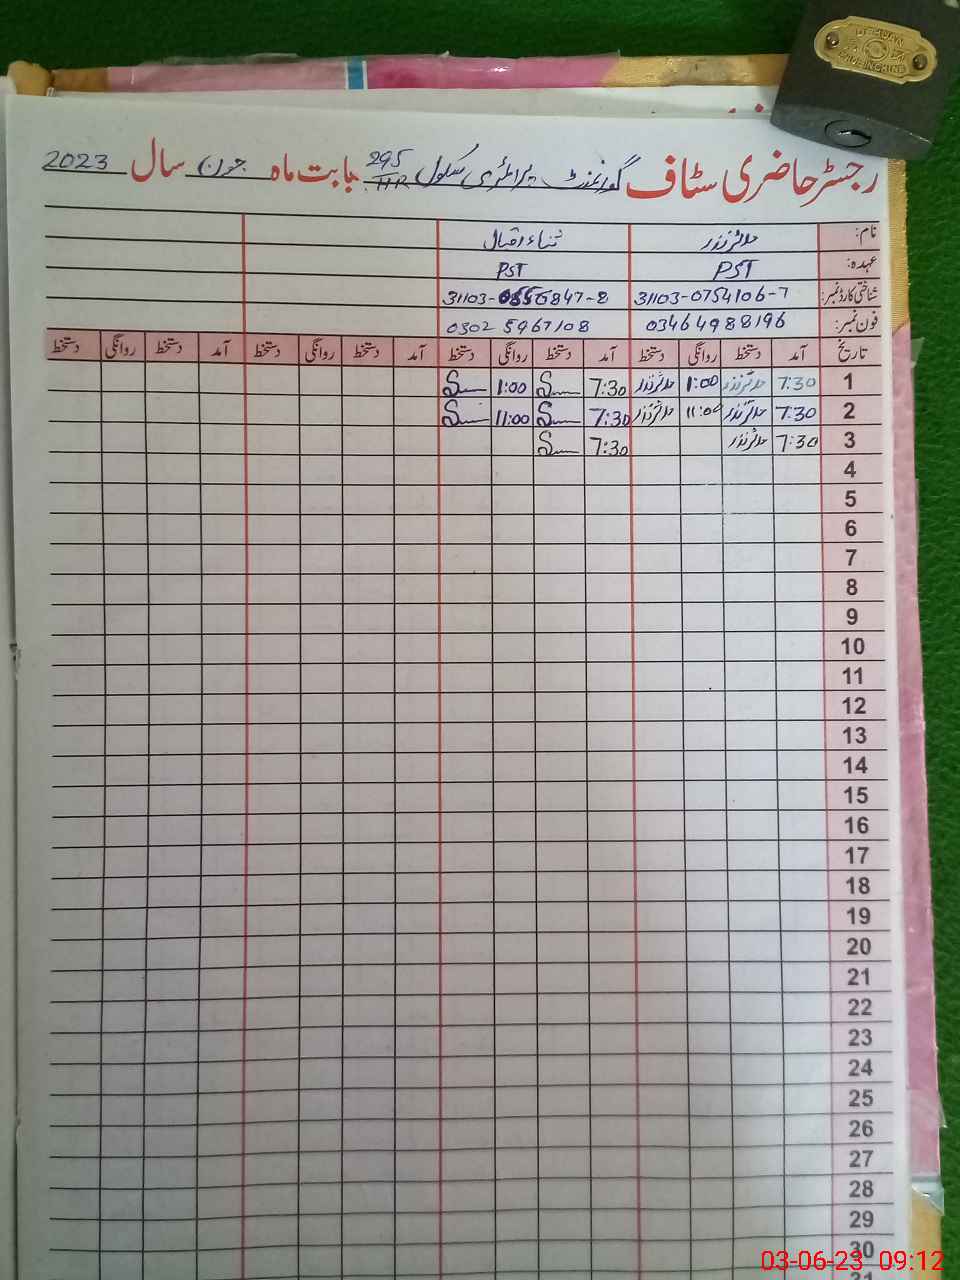 DEHUAN
MADE IN CHINA
رجسٹر حاضری سٹاف گورنمنٹ پرائمری سکول 295/HR بابت ماہ جون سال 2023
نام: ثناء اقبال
عہدہ: PST PST
شناختی کارڈ نمبر: 31103-0754106-7 31103-0556847-2
فون نمبر: 03464988196 0302 5967108
تاریخ آمد دستخط روانگی دستخط آمد دستخط روانگی دستخط آمد دستخط روانگی دستخط آمد دستخط روانگی دستخط
1 7:30 1:00 7:30 1:00
2 7:30 11:00 7:30 11:00
3 7:30 7:30
4
5
6
7
8
9
10
11
12
13
14
15
16
17
18
19
20
21
22
23
24
25
26
27
28
29
30
31
03-06-23 09:12